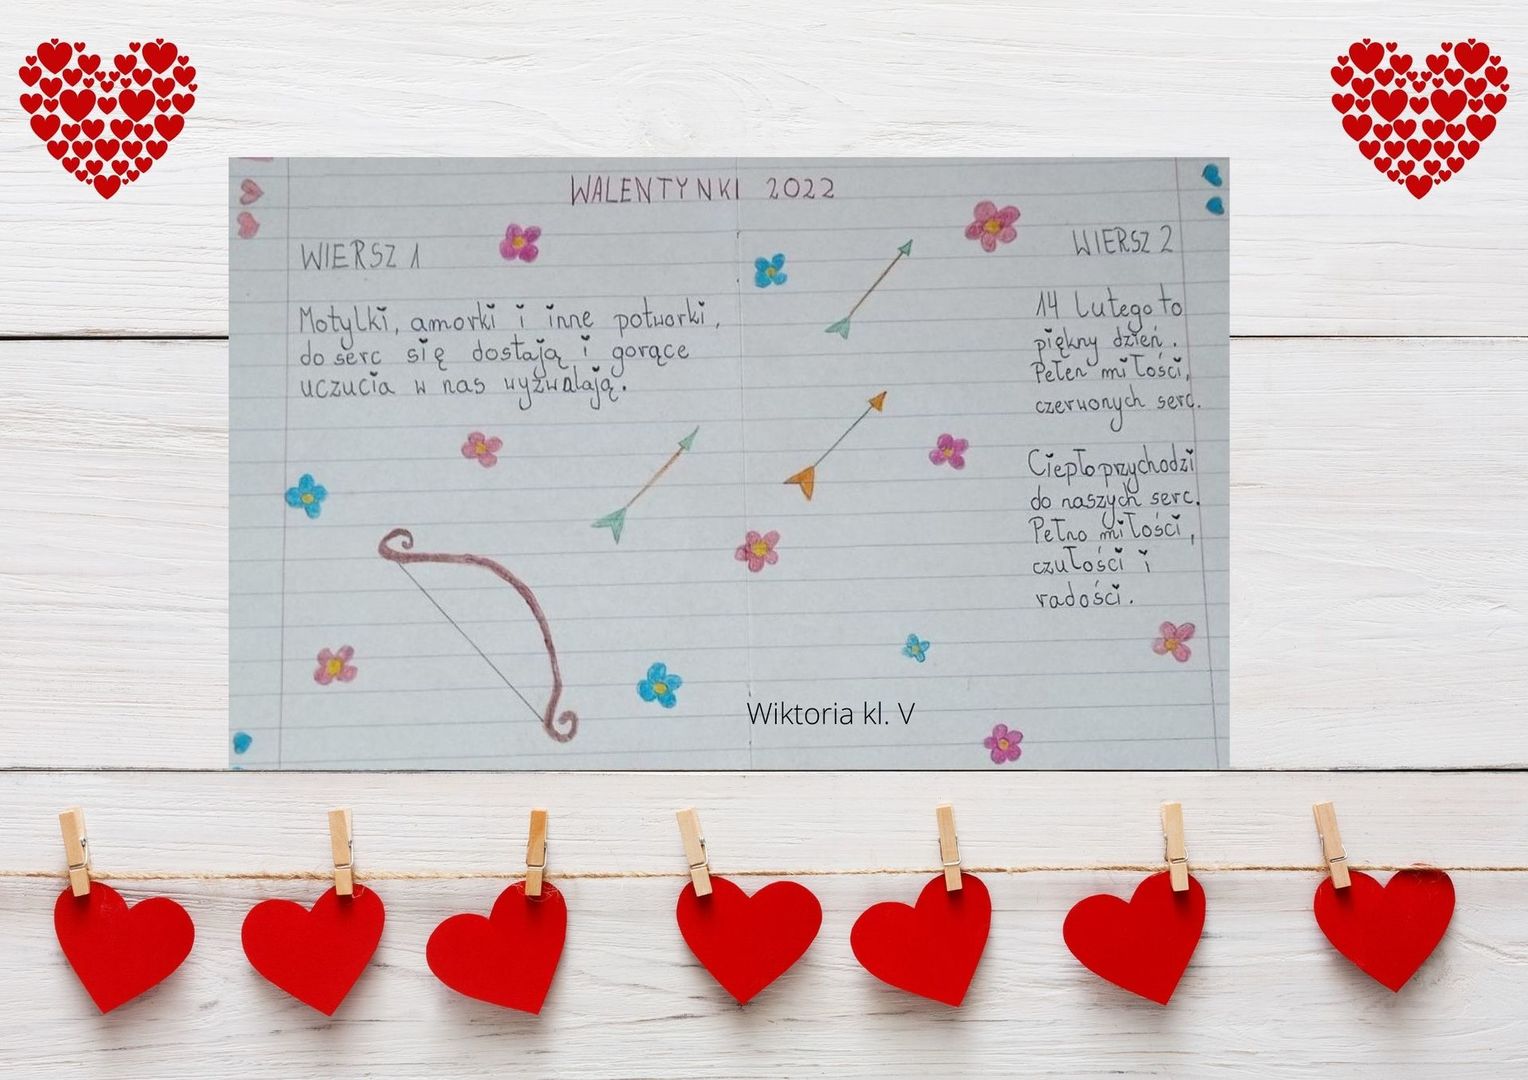 WALENTYNKI 2022
WIERSZ 1
Motylki, amorki i inne potworki,
do serc się dostają i gorące
uczucia w nas wyzwalają.
WIERSZ 2
14 lutego to
piękny dzień.
Pełen miłości,
czerwonych serc.
Ciepło przychodzi
do naszych serc.
Pełno miłości,
czułości i
radości.
Wiktoria kl. V